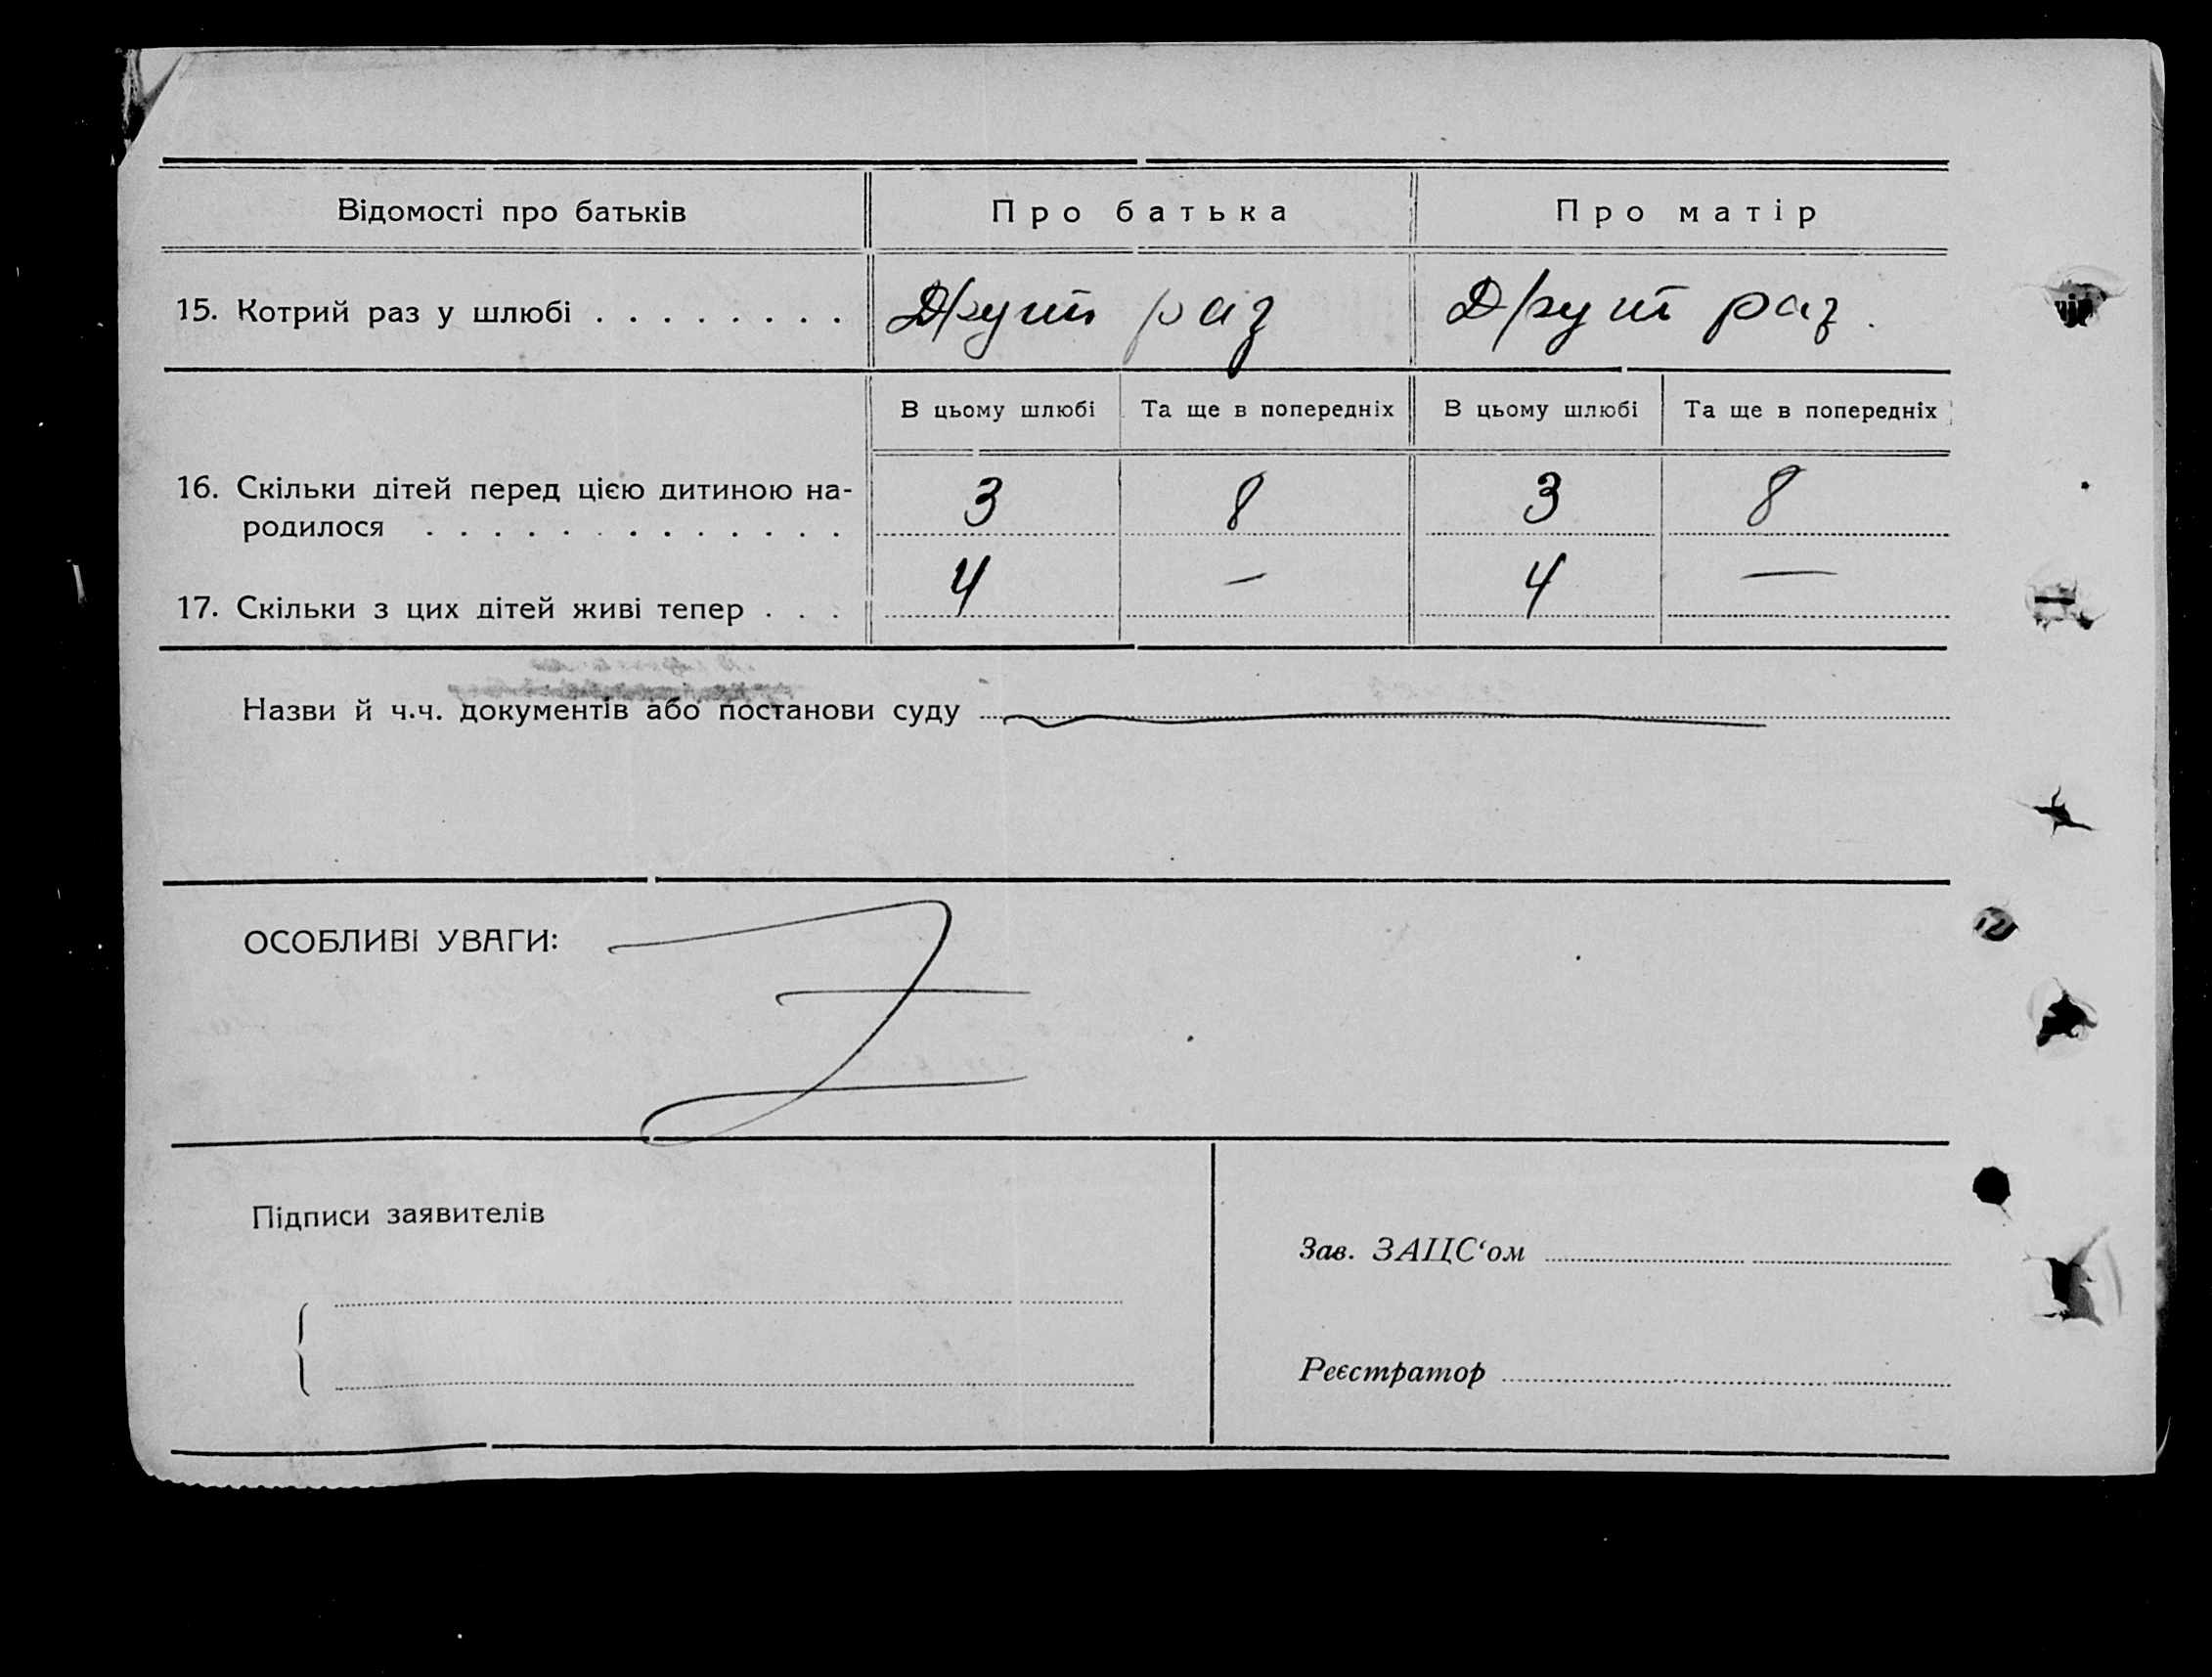 Відомості про батьків Про батька Про матір
15. Котрий раз у шлюбі . . . . . . . . Другий раз Другий раз.
В цьому шлюбі Та ще в попередніх В цьому шлюбі Та ще в попередніх
16. Скільки дітей перед цією дитиною на-
родилося . . . . . . . . . . . . . 3 8 3 8
17. Скільки з цих дітей живі тепер . . . 4 — 4 —
Назви й ч.ч. документів або постанови суду
ОСОБЛИВІ УВАГИ:
Підписи заявителів
Зав. ЗАЦС‘ом
Реєстратор